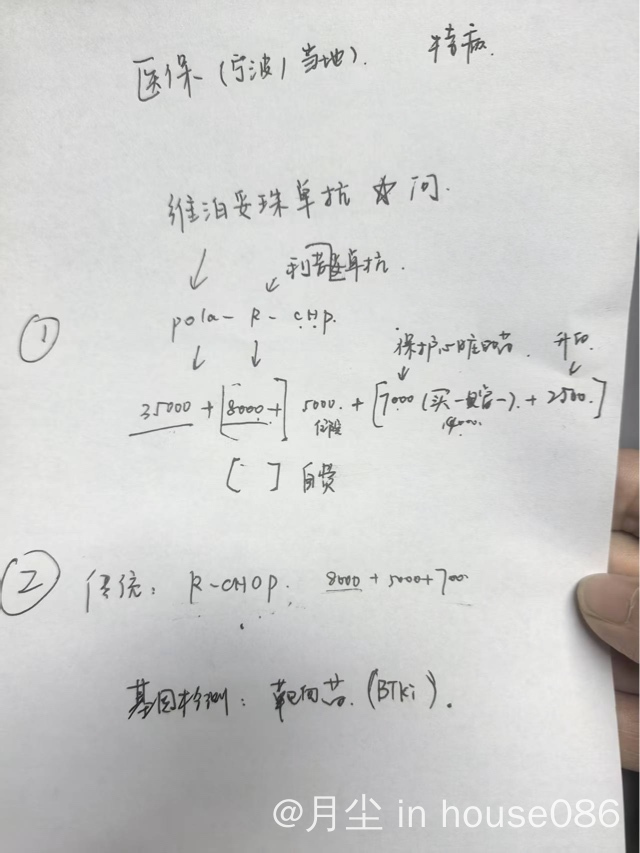 医保（宁波/当地）. 特病.
维泊妥珠单抗 ☆ 问.
利妥昔单抗.
① pola-R-CHP.
保护心脏的药 升白.
35000 + [8000+] 5000. + [7000 (买一赠一). + 2500.]
住院
[ ] 自费
② 传统: R-CHOP. 8000 + 5000 + 700
基因检测: 靶向药. (BTKi).
@月尘 in house086